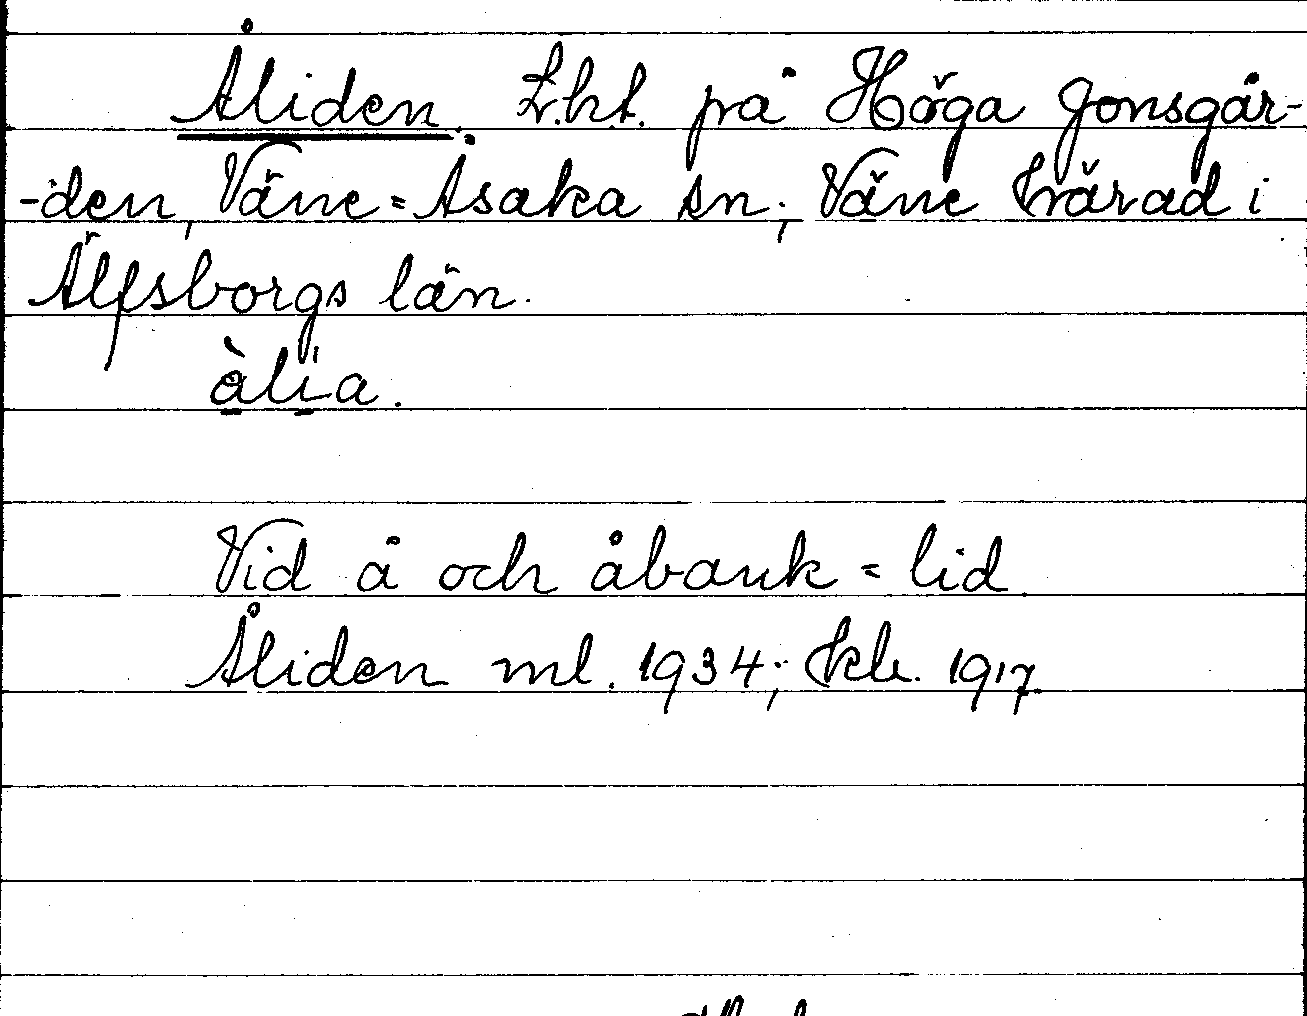 Åliden. L.h.t. på Höga Jonsgår-
-den, Väne=Åsaka sn; Väne härad i
Älfsborgs län.
àlia.
Vid å och åbank=lid
Åliden ml. 1934; kb. 1917